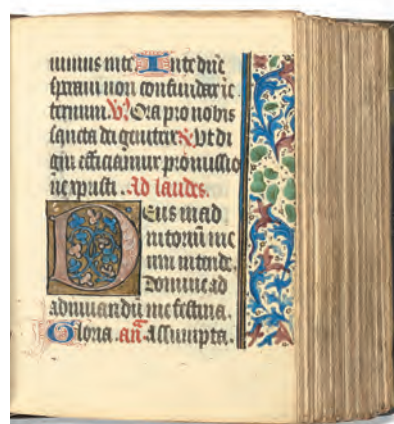 minus in te In te dn̄e
speraui non confundar ī e
ternum. V Ora pro nobis
sancta dei genitrix R Vt di
gni efficiamur promissio
ne xpristi . Ad laudes.
Deus in ad
iutoriū me
um intende.
Domine ad
adiuuandū me festina.
Gloria. an̄. Assumpta.